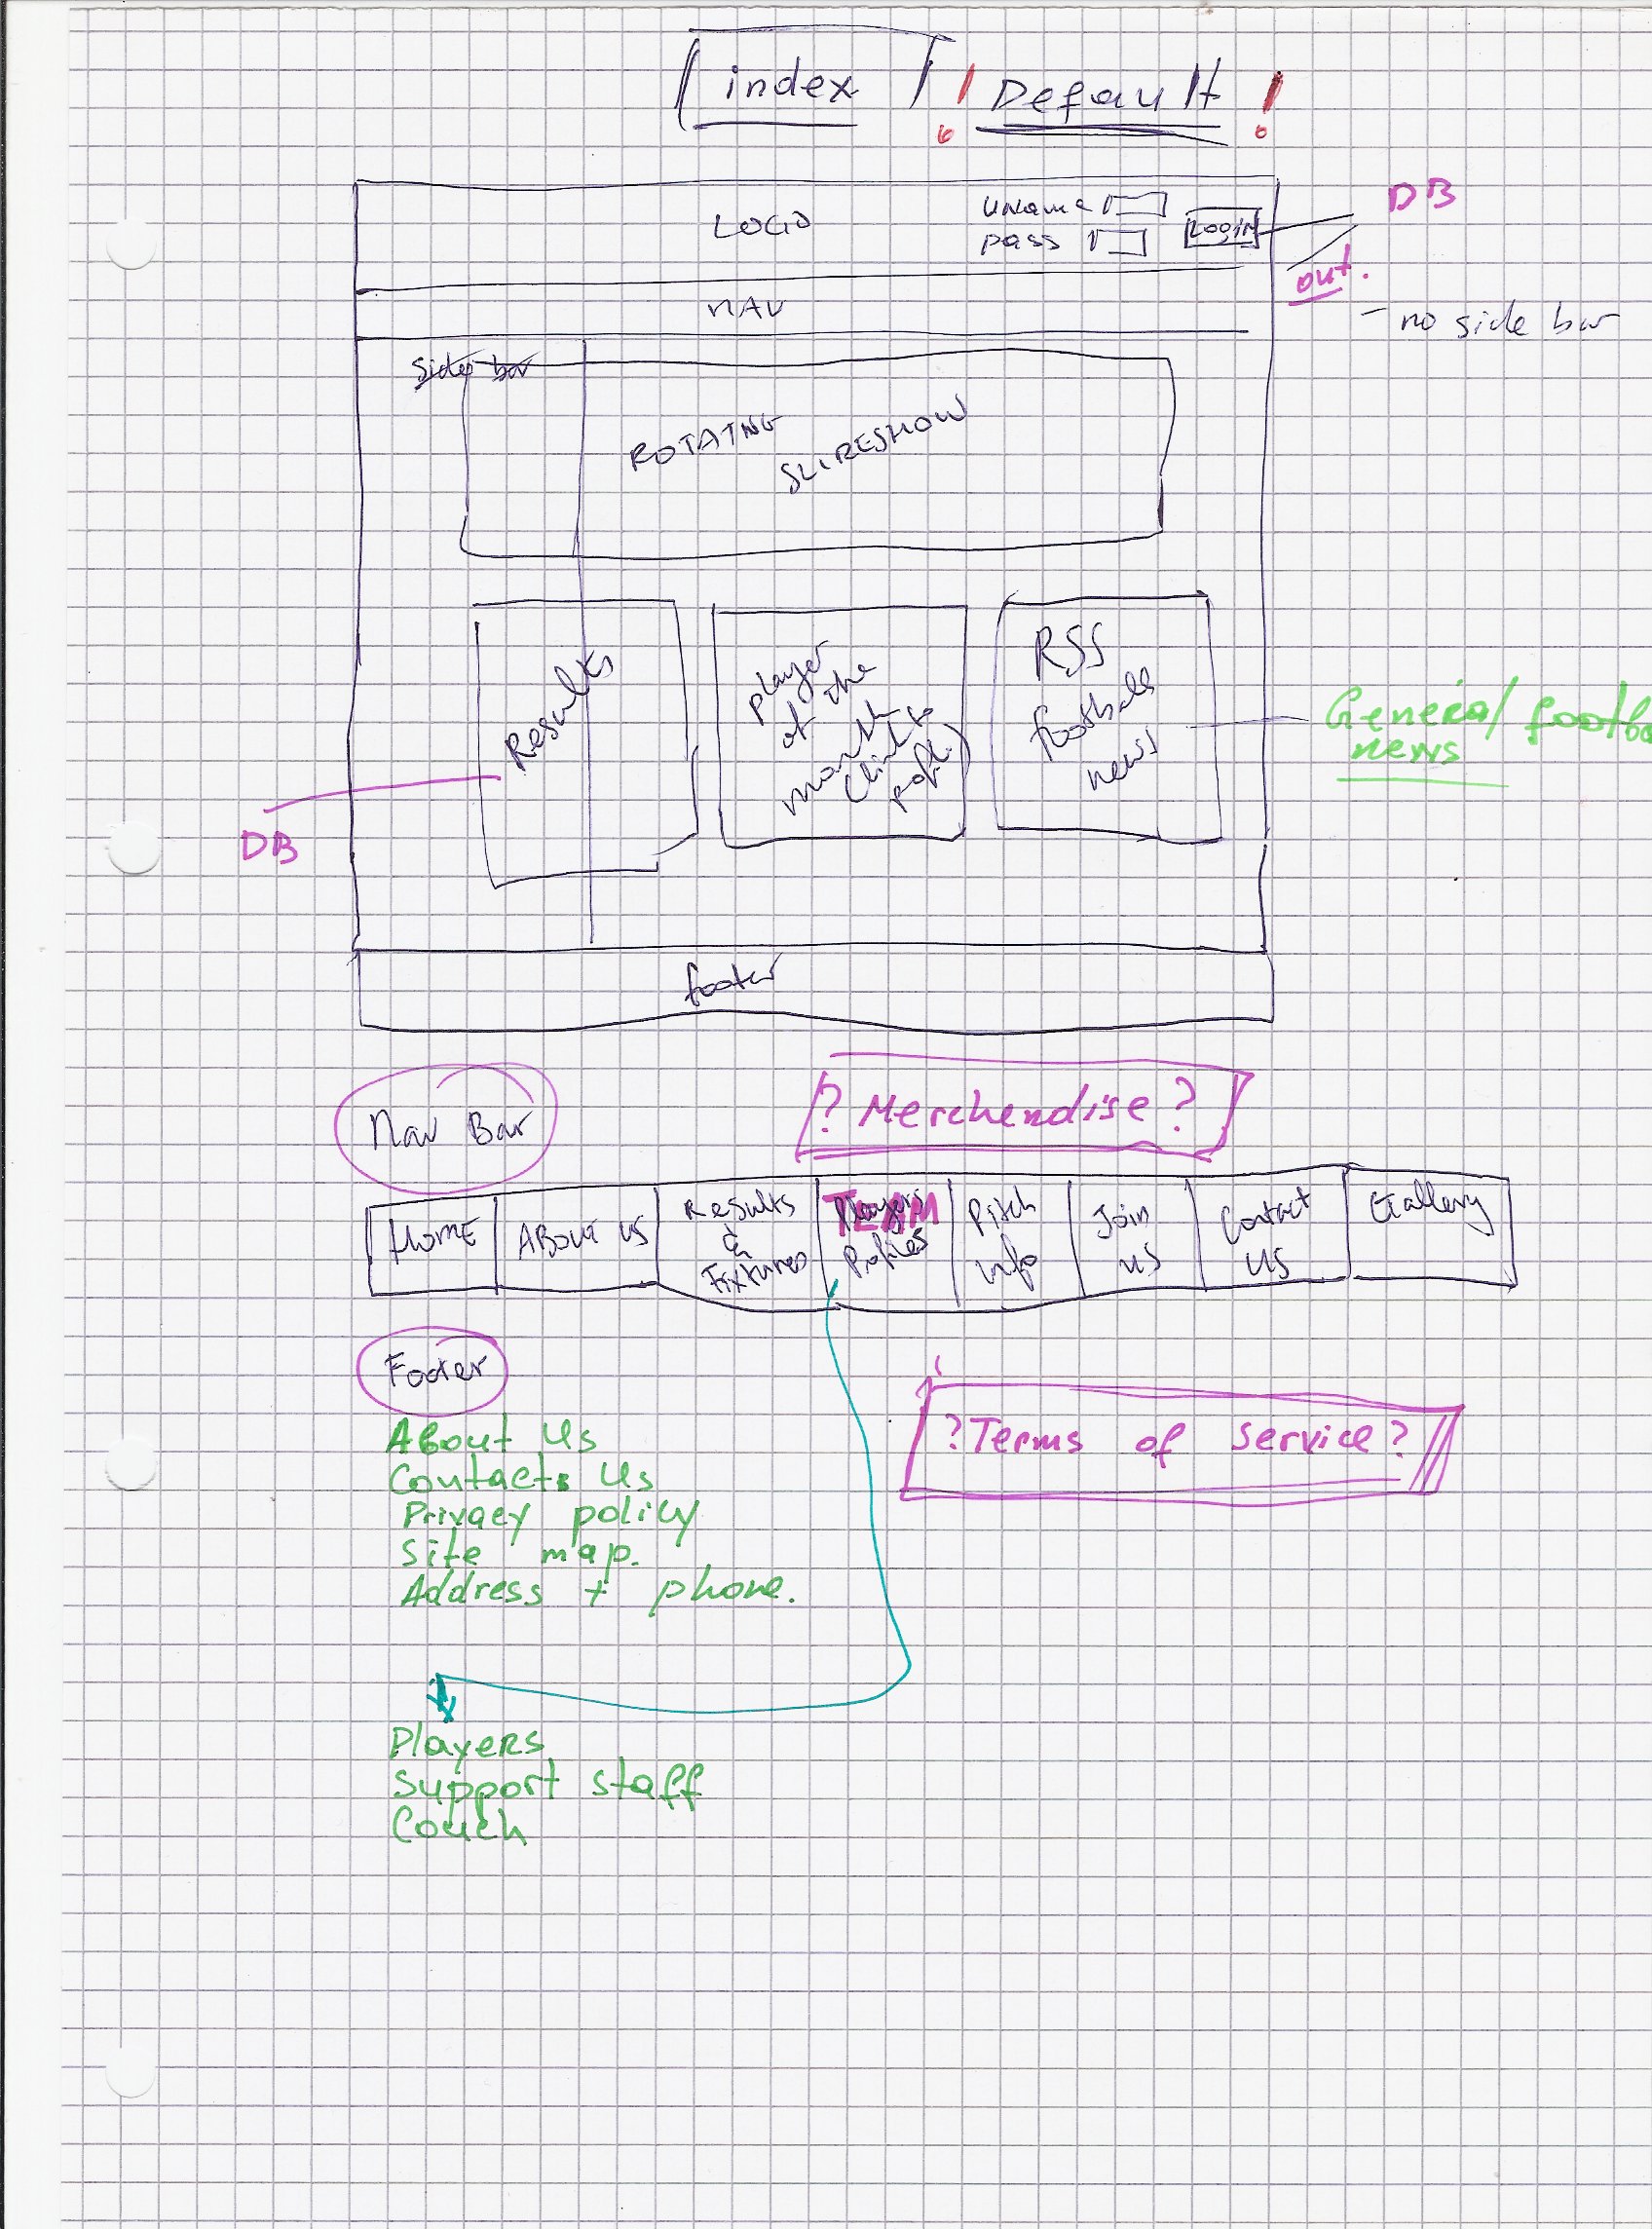 index ! Default !
LOGO
uname
pass
LOGIN
DB
out.
- no side bar
NAV
Side bar
ROTATING
SLIRESHOW
Results
DB
player
of the
month
(link to
pofil)
RSS
football
news
General footba
news
footer
Nav Bar
? Merchendise ?
HOME
ABOUT US
Results
&
Fixtures
Players
TEAM
Profiles
Pitch
info
Join
us
Contact
US
Gallery
Footer
?Terms of service?
About Us
Contacts Us
Privacy policy
Site map.
Address + phone.
Players
Support staff
Couch